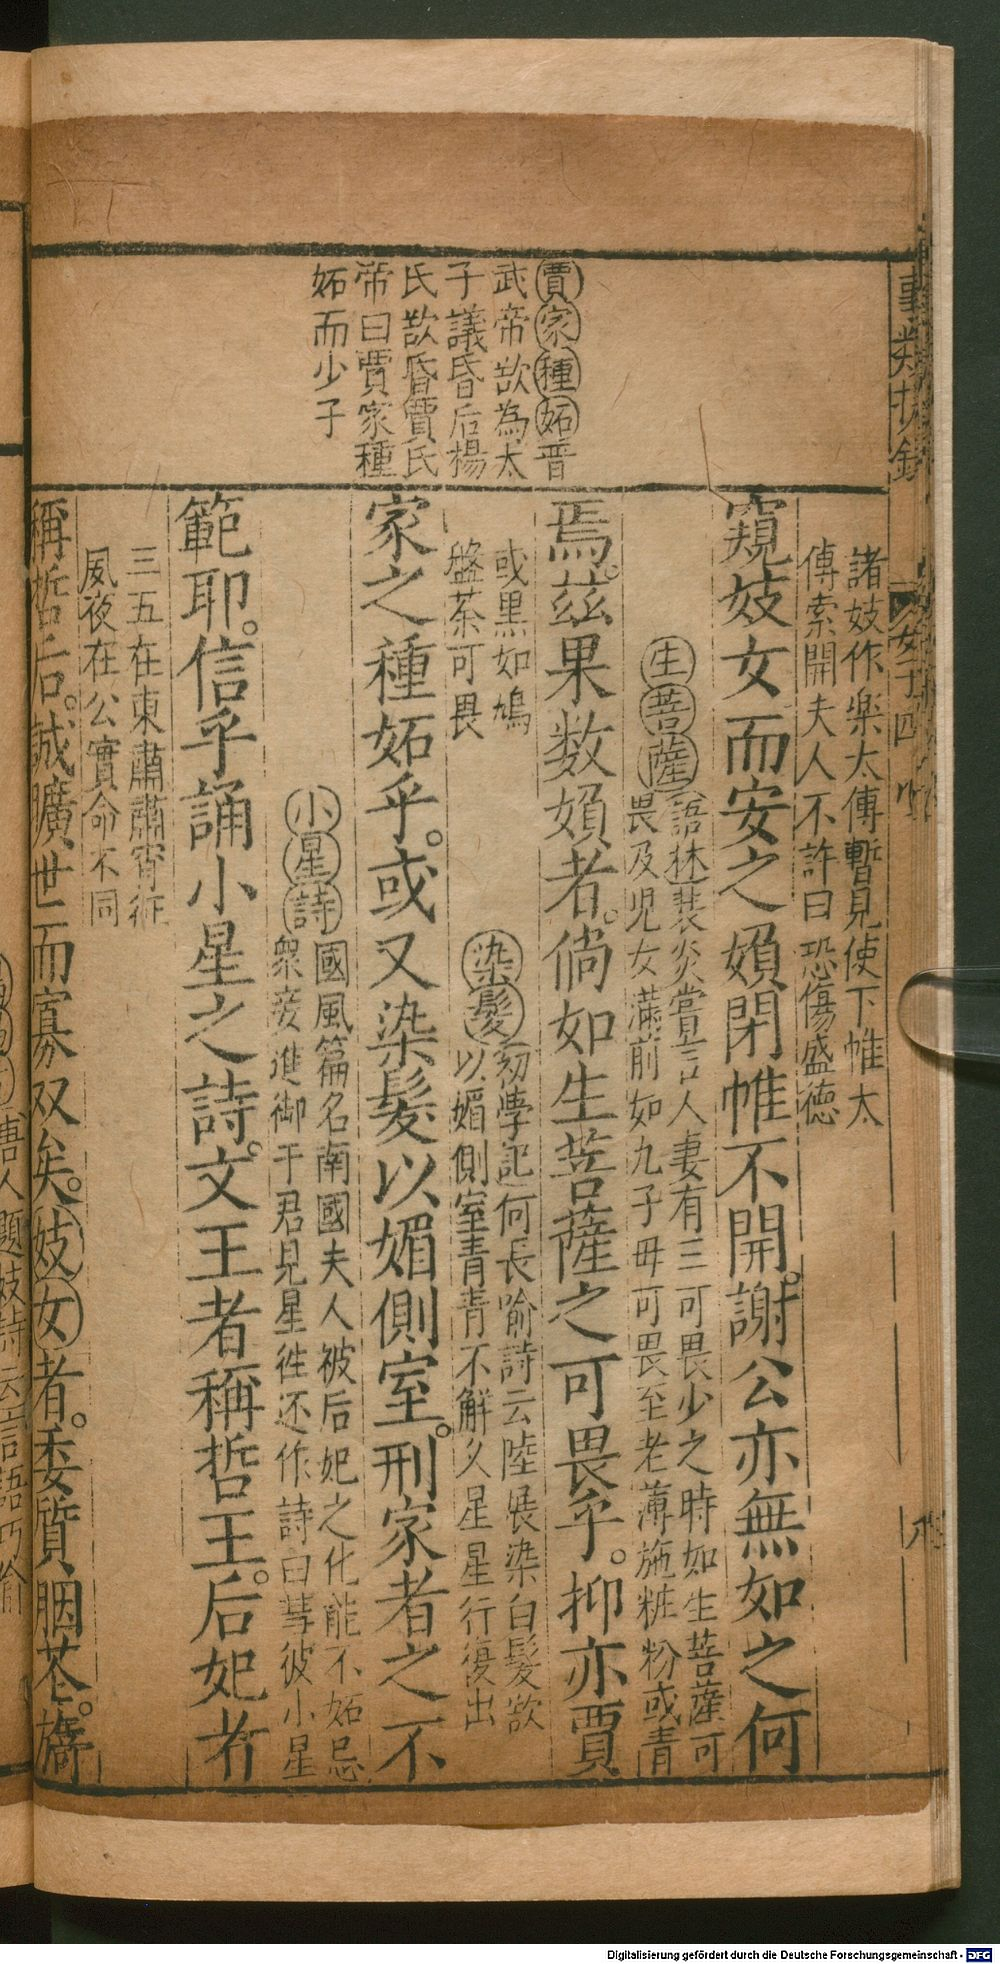 賈家種妬晋
武帝欲為太
子議昏后楊
氏欲昏賈氏
帝曰賈家種
妬而少子
諸妓作楽太傅暫見使下帷太
傅索開夫人不許曰恐傷盛德
窺妓女而安之嬪閉帷不開。謝公亦無如之何
生菩薩語林裴炎嘗言人妻有三可畏少之時如生菩薩可
畏及児女滿前如九子毋可畏至老薄施粧粉或青
焉。茲果数嬪者。倘如生菩薩之可畏乎。抑亦賈
或黒如鳩
盤茶可畏
染髮初學記何長喻詩云陸展染白髮欲
以媚側室青青不觧久星星行復出
家之種妬乎。或又染髮以媚側室。刑家者之不
小星詩國風篇名南國夫人被后妃之化能不妬忌
衆妾進御于君見星徃还作詩曰彗彼小星
範耶。信乎誦小星之詩。文王者稱哲王。后妃者
三五在東肅肅宵征
夙夜在公實命不同
稱哲后。誠曠世而寡双矣。妓女者。委質胭苍。
唐人題妓詩云言語巧偷
女子四
Digitalisierung gefördert durch die Deutsche Forschungsgemeinschaft - DFG